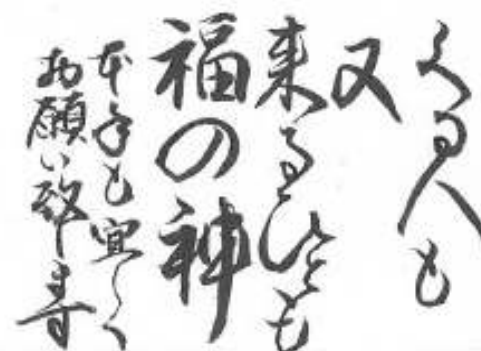 くる人も
又
来るひとも
福の神
本年も宜しく
お願い致します